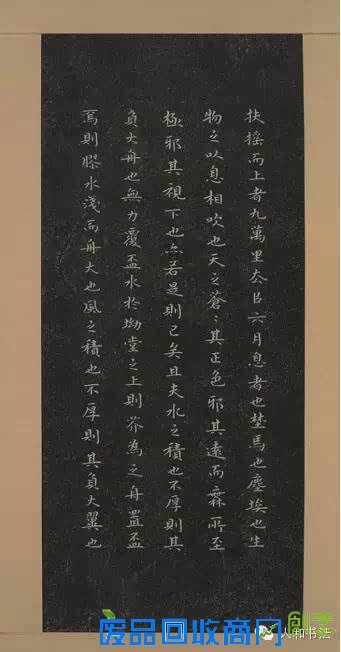 扶摇而上者九萬里去以六月息者也埜馬也塵埃也生
物之以息相吹也天之蒼〻其正色邪其遠而無所至
極邪其視下也亦若是則已矣且夫水之積也不厚則其
負大舟也無力覆盃水於坳堂之上則芥為之舟置盃
焉則膠水淺而舟大也風之積也不厚則其負大翼也
人和书法
废品回收商网